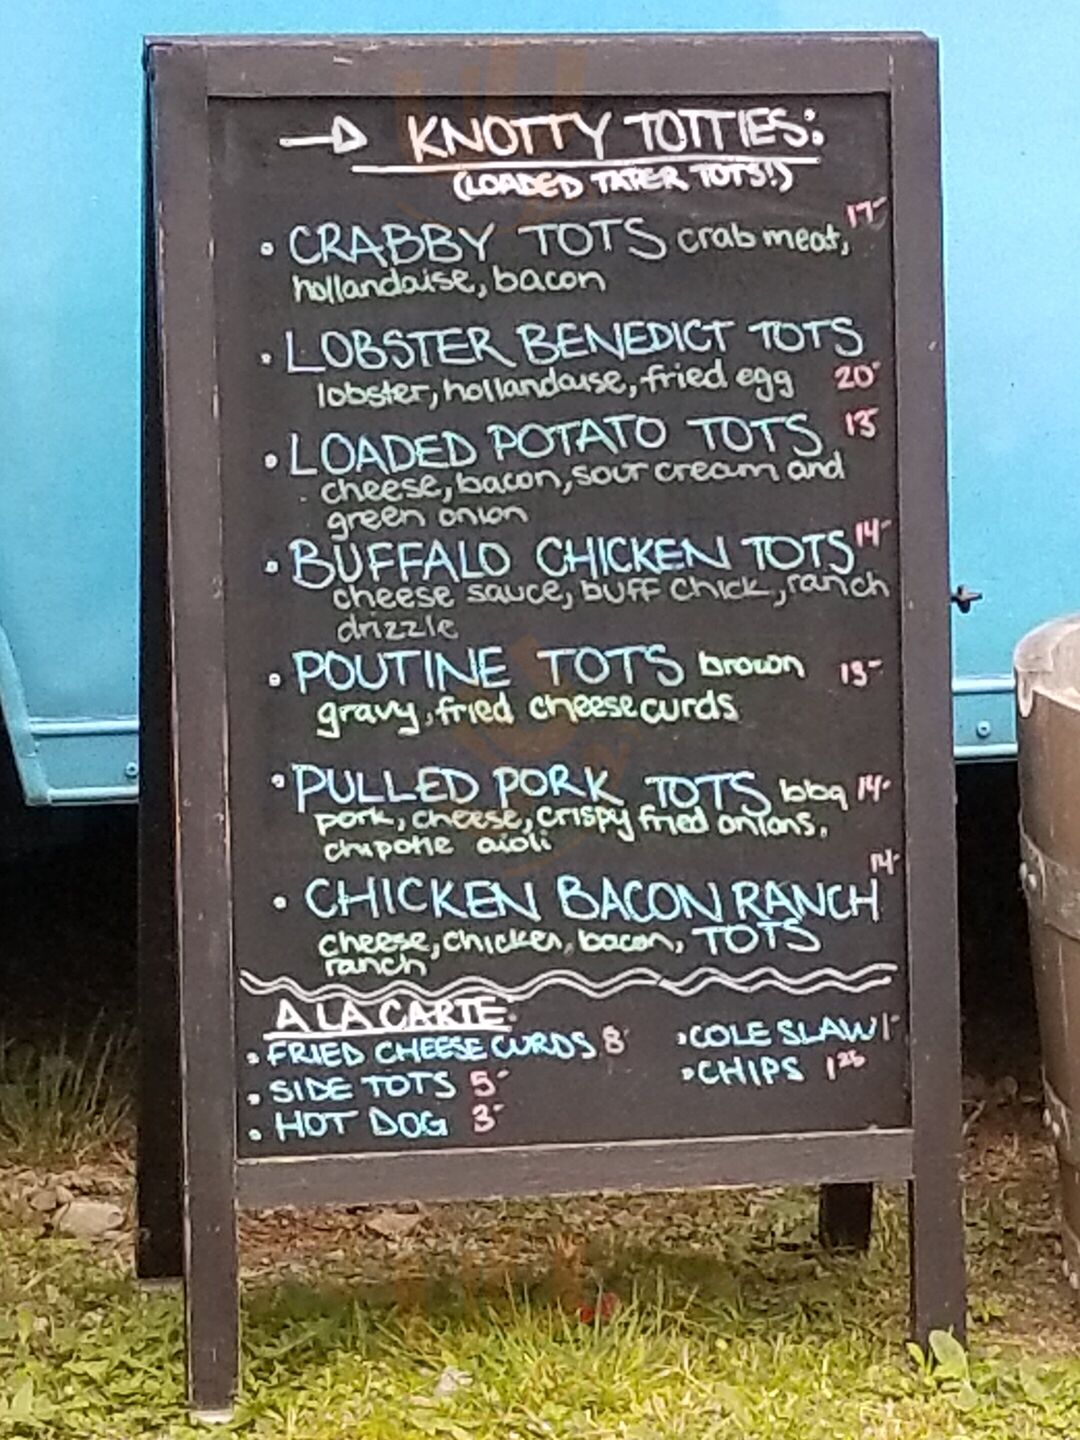 KNOTTY TOTTIES:
(LOADED TATER TOTS!)
• CRABBY TOTS crab meat, 17-
hollandaise, bacon
• LOBSTER BENEDICT TOTS
lobster, hollandaise, fried egg 20-
• LOADED POTATO TOTS 13-
cheese, bacon, sour cream and
green onion
• BUFFALO CHICKEN TOTS 14-
cheese sauce, buff chick, ranch
drizzle
• POUTINE TOTS brown 13-
gravy, fried cheese curds
• PULLED PORK TOTS bbq 14-
pork, cheese, crispy fried onions,
chipotle aioli
• CHICKEN BACON RANCH 14-
cheese, chicken, bacon, TOTS
ranch
A LA CARTE:
• FRIED CHEESE CURDS 8-
• SIDE TOTS 5-
• HOT DOG 3-
• COLE SLAW 1-
• CHIPS 1.25